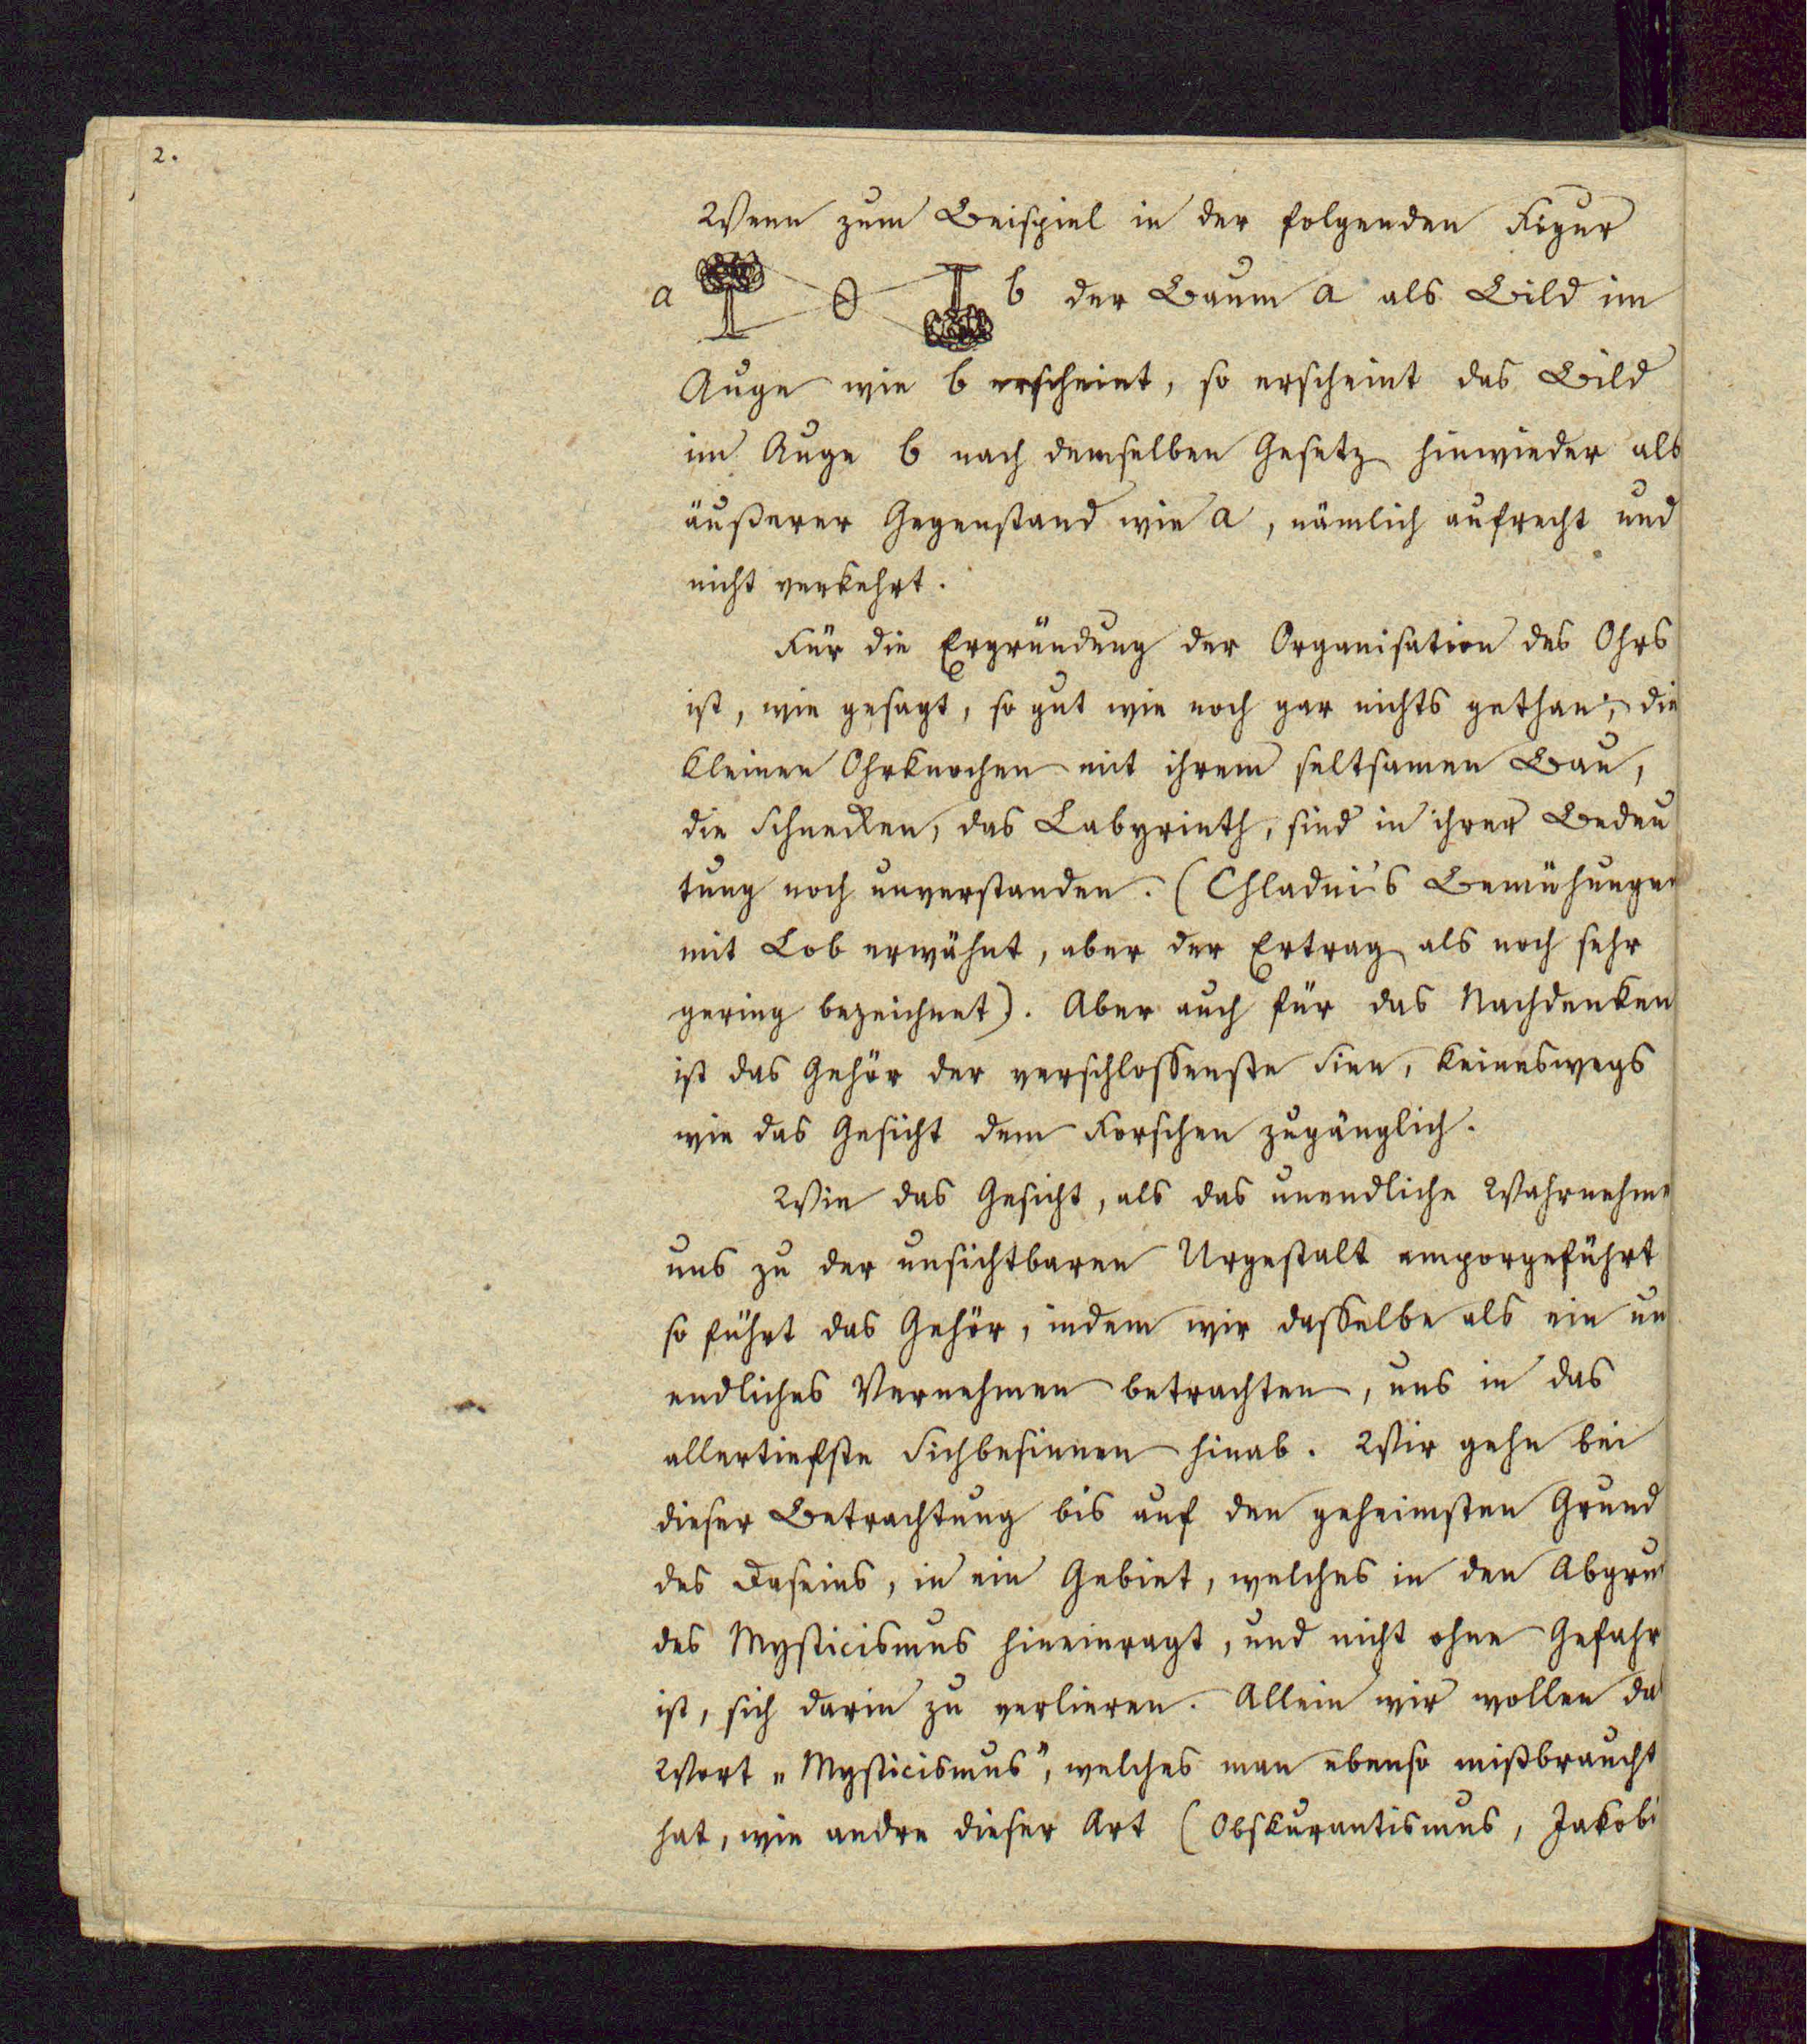 2.
Wenn zum Beispiel in der folgenden Figur
a b der Baum a als Bild im
Auge wie b erscheint, so erscheint das Bild
im Auge b nach demselben Gesetz hinwieder als
äußerer Gegenstand wie a, nämlich aufrecht und
nicht verkehrt.
Für die Ergründung der Organisation des Ohrs
ist, wie gesagt, so gut wie noch gar nichts gethan; die
kleinen Ohrknochen mit ihrem seltsamen Bau,
die Schnecken, das Labyrinth, sind in ihrer Bedeu
tung noch unverstanden. (Chladni's Bemühungen
mit Lob erwähnt, aber der Ertrag als noch sehr
gering bezeichnet). Aber auch für das Nachdenken
ist das Gehör der verschlossenste Sinn, keineswegs
wie das Gesicht dem Forschen zugänglich.
Wie das Gesicht, als das unendliche Wahrnehme
uns zu der unsichtbaren Urgestalt emporgeführt
so führt das Gehör, indem wir dasselbe als ein un
endliches Vernehmen betrachten, uns in das
allertiefste Sichbesinnen hinab. Wir gehn bei
dieser Betrachtung bis auf den geheimsten Grund
des Daseins, in ein Gebiet, welches in den Abgru
des Mysticismus hineinragt, und nicht ohne Gefahr
ist, sich darin zu verlieren. Allein wir wollen da
Wort „Mysticismus", welches man ebenso mißbraucht
hat, wie andre dieser Art (Obskurantismus, Jakobi